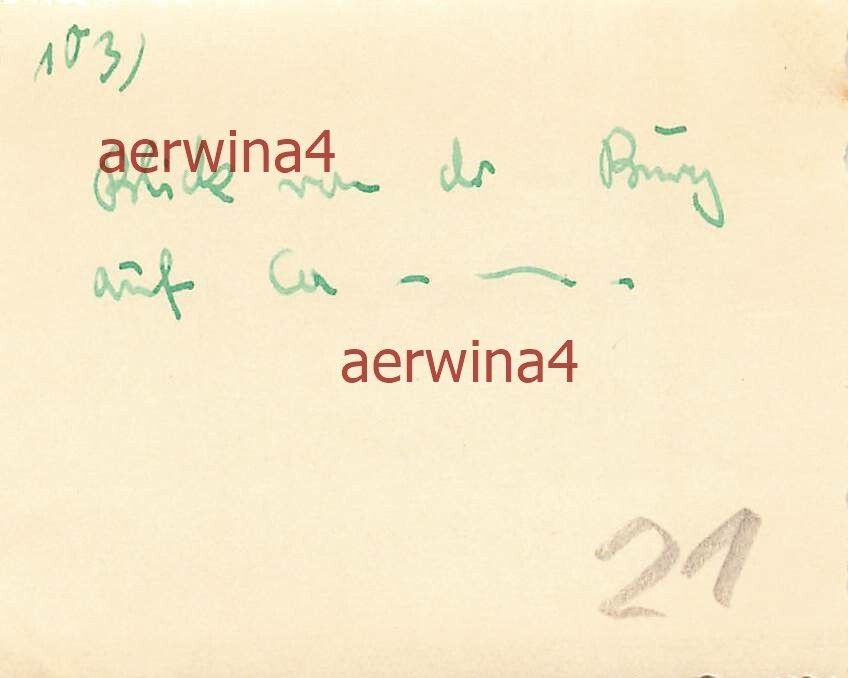 103)
aerwina4
Blick von der Burg
auf
aerwina4
21